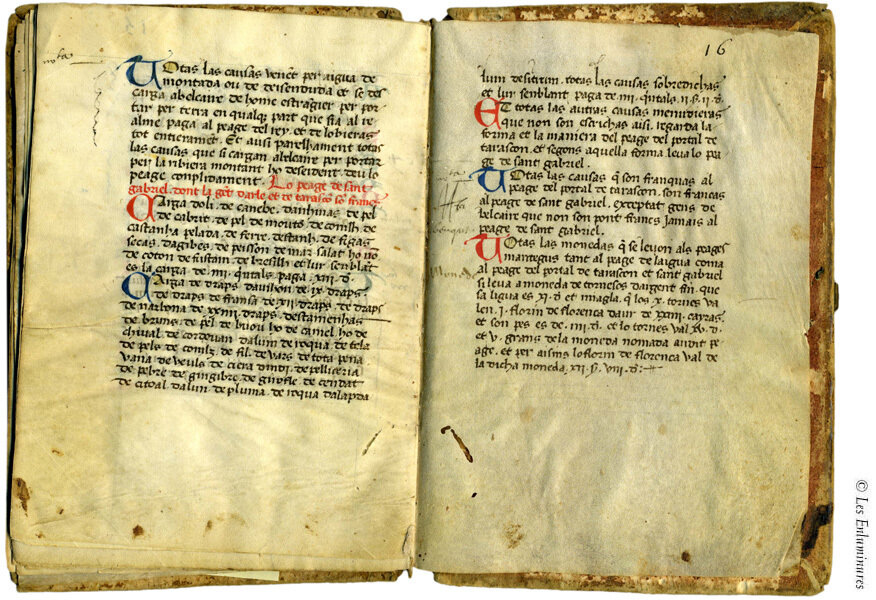 nota
Totas las causas venent per aigua de
montada ou de deisenduda et se des
carga abelcaire de home estrãgier per por
tar per terra en qualq part que sia al re
alme paga al peage del rey et lobieras
tot entieramet. Et ausi pareshament totas
las causas que si cargan abelcaire per portar
per la ribiera montant ho desedent deu lo
peage complidament. Lo peage de sant
gabriel dont la get darle et de tarascõ sõ franc
Carga doli de canebe danhinas de pel
de cabrit de pel de moutõ de conilh de
castanha pelada de ferre destanh de figas
secas dagibes de peisson de mar salat ho nõ
de coton de fustani de bresilh et lur senblat
es la carga de .iii. quitals paga .xii. d.
Carga de draps davilhon de ix draps
de draps de fransa de xii draps de draps
de narbona de xxiiii draps destamenhas
de bruns de pel de buou ho de camel ho de
chival de cordoan dalum de roqua de tela
de pels de conilz de fil de vars de tota pena
vana de veuls de ciera dindi de pelliceria
de pebre de gingibre de girofle de cendat
de citoal dalum de pluma de roqua dalapda
16
lum desitrum totas las causas sobredichas
et lur senblant paga de .iii. quitals .ii. s. ii. d.
Et totas las autras causas menudieras
que non son escrichas aisi regarda la
forma et la maniera del peage del portal de
tarascon et segons aquella forma leva lo pa
ge de sant gabriel.
Totas las causas q̃ son franquas al
peage del portal de tarascon son francas
al peage de sant gabriel exceptat gens de
belcaire que non son pont francs jamais al
peage de sant gabriel.
Totas las monedas q̃ se levon als peages
martegus tant al peage de laigua coma
al peage del portal de tarascon et sant gabriel
si leva a moneda de tornes dargent fin que
sa ligua es xi d. et
que los x tornes va
len .i. florin de florenca daur de xxiiii cayras
et son pes es de .iii. d. et lo tornes val xv d.
et v grans de la moneda nomada au
pe
age et per aisins lo florin de florenca val de
la dicha moneda xii s. viii d.
© Les Enluminures